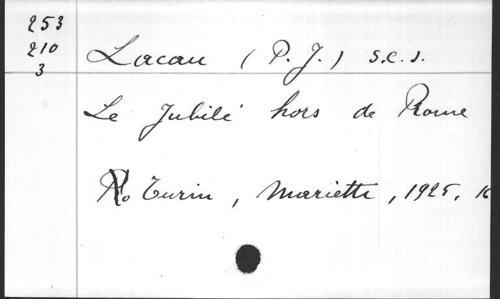 253
210 Lacau (P. J.) s.c.J.
3
Le Jubilé hors de Rome
Turin, Marietti, 1925, 16